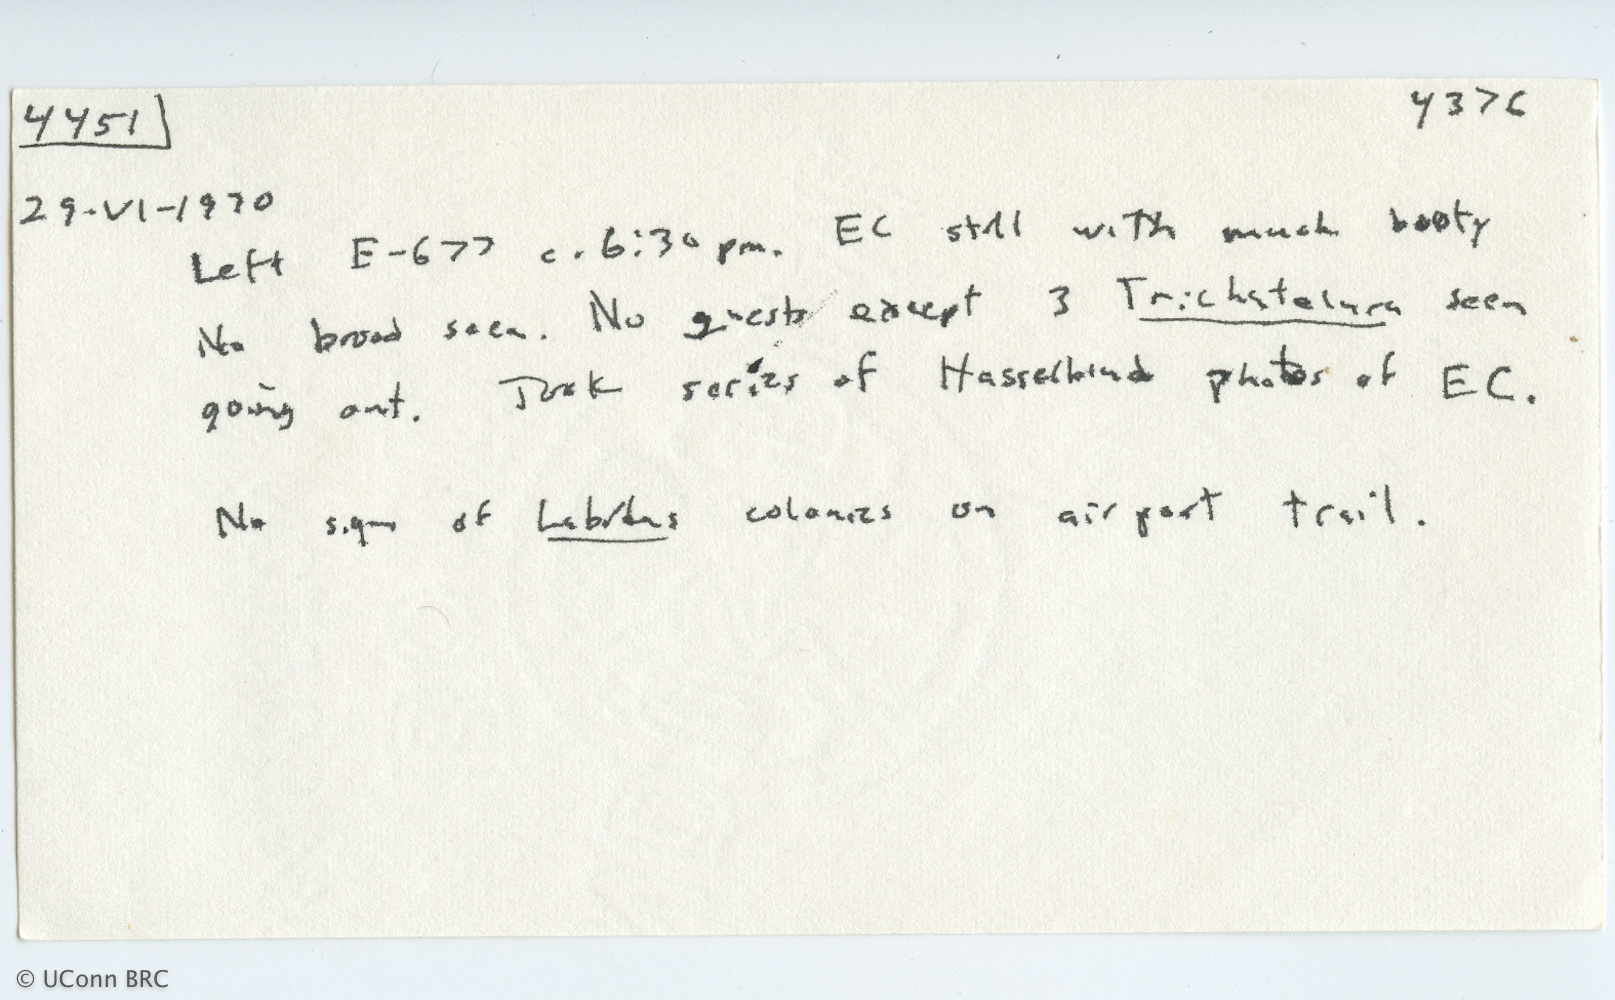 4451 4376
29-VI-1970
Left E-677 c. 6:30 pm. EC still with much booty
No brood seen. No guests except 3 Trichatelura seen
going out. Took series of Hasselblad photos of EC.
No sign of Labidus colonies on airport trail.
© UConn BRC